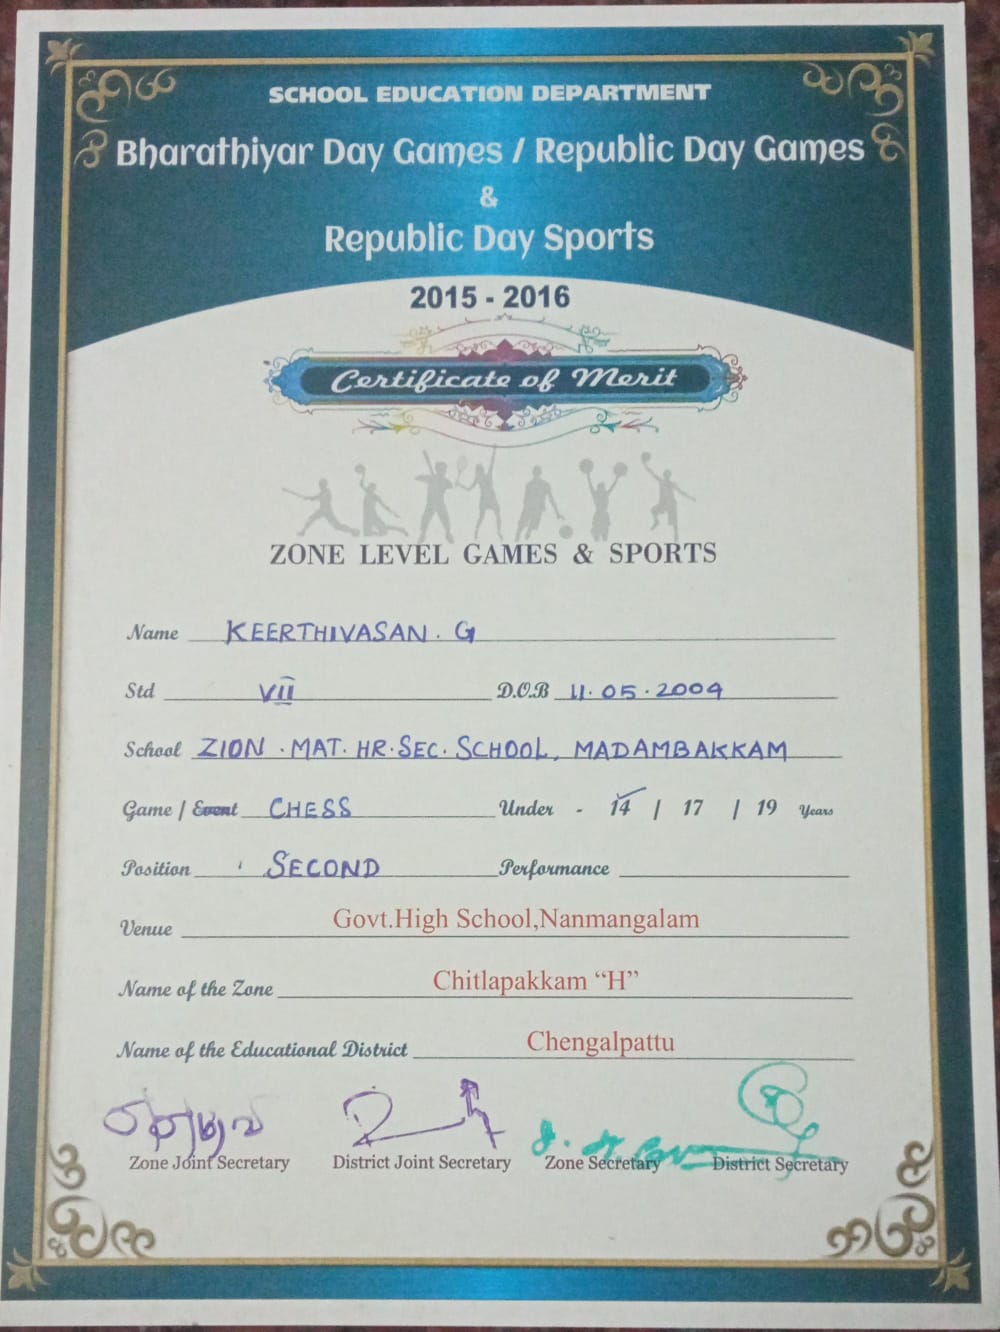 SCHOOL EDUCATION DEPARTMENT
Bharathiyar Day Games / Republic Day Games
&
Republic Day Sports
2015 - 2016
Certificate of Merit
ZONE LEVEL GAMES & SPORTS
Name KEERTHIVASAN. G
Std VII D.O.B 11.05.2009
School ZION.MAT.HR.SEC.SCHOOL, MADAMBAKKAM
Game / Event CHESS Under - 14 / 17 / 19 Years
Position SECOND Performance
Venue Govt.High School,Nanmangalam
Name of the Zone Chitlapakkam “H”
Name of the Educational District Chengalpattu
Zone Joint Secretary District Joint Secretary Zone Secretary District Secretary